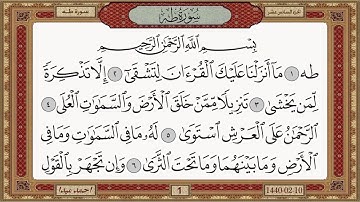 سورة طه
الجزء السادس عشر
سُورَةُ طه
بِسْمِ اللَّهِ الرَّحْمَٰنِ الرَّحِيمِ
طه ١ مَا أَنزَلْنَا عَلَيْكَ الْقُرْءَانَ لِتَشْقَىٰ ٢ إِلَّا تَذْكِرَةً
لِّمَن يَخْشَىٰ ٣ تَنزِيلًا مِّمَّنْ خَلَقَ الْأَرْضَ وَالسَّمَٰوَٰتِ الْعُلَى ٤
الرَّحْمَٰنُ عَلَى الْعَرْشِ اسْتَوَىٰ ٥ لَهُ مَا فِي السَّمَٰوَٰتِ وَمَا فِي
الْأَرْضِ وَمَا بَيْنَهُمَا وَمَا تَحْتَ الثَّرَىٰ ٦ وَإِن تَجْهَرْ بِالْقَوْلِ
1440-02-10
1